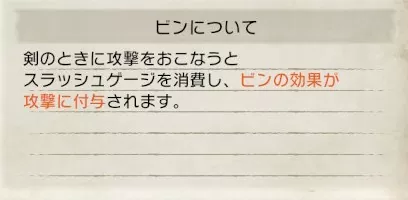 ビンについて
剣のときに攻撃をおこなうと
スラッシュゲージを消費し、ビンの効果が
攻撃に付与されます。